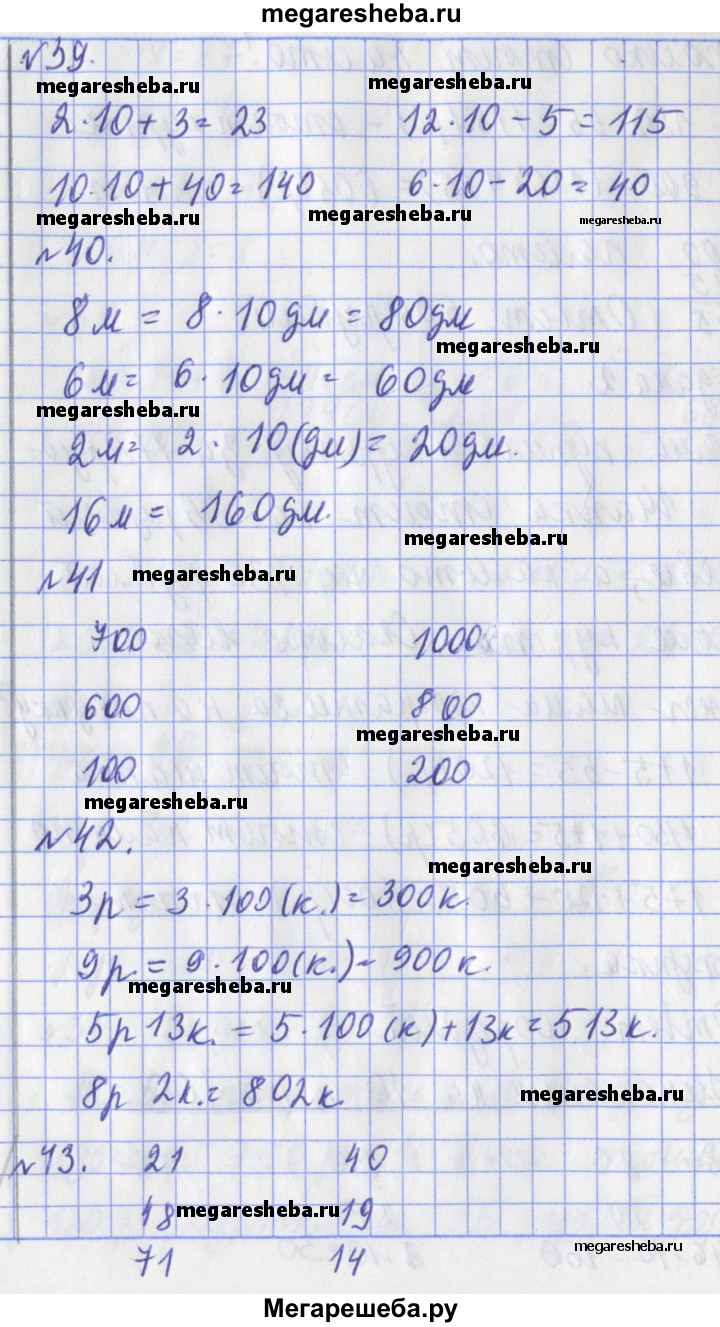 megaresheba.ru
№39.
megaresheba.ru megaresheba.ru
2·10+3=23 12·10-5=115
10·10+40=140 6·10-20=40
megaresheba.ru megaresheba.ru megaresheba.ru
№40.
8м = 8·10дм = 80дм
megaresheba.ru
6м= 6·10дм= 60дм
megaresheba.ru
2м= 2·10(дм)=20дм.
16м= 160дм.
megaresheba.ru
№41 megaresheba.ru
700 1000
600 800
megaresheba.ru
100 200
megaresheba.ru
№42.
megaresheba.ru
3р = 3·100(к.)=300к.
9р.=9·100(к.)-900к.
megaresheba.ru
5р 13к.=5·100(к)+13к=513к.
8р 2к.=802к.
megaresheba.ru
№43. 21 40
48 megaresheba.ru 19
megaresheba.ru
71 14
Мегарешеба.ру